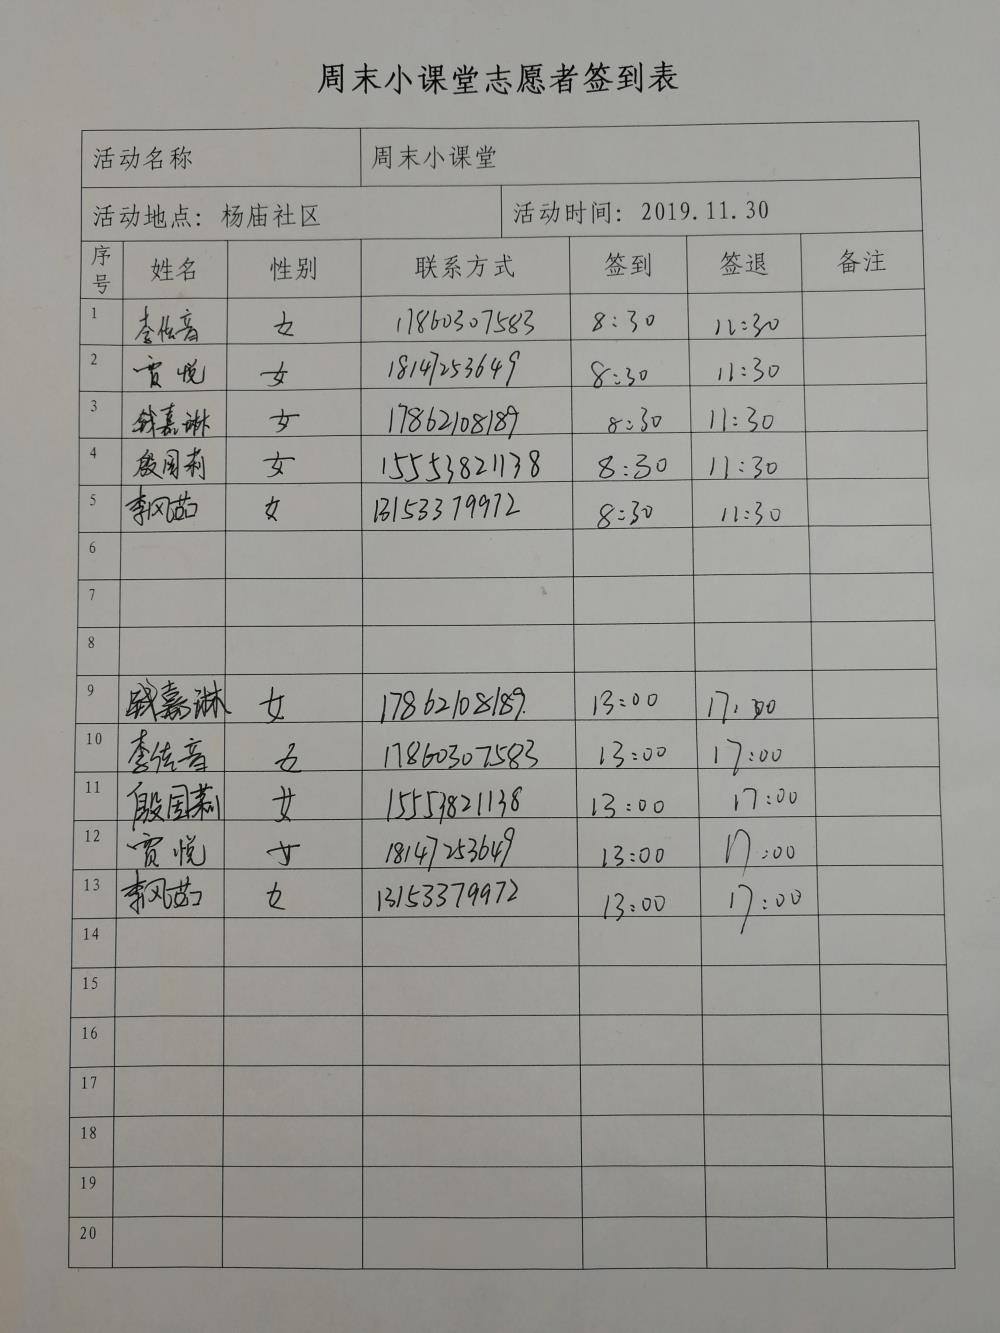 周末小课堂志愿者签到表
活动名称 周末小课堂
活动地点：杨庙社区 活动时间：2019.11.30
序号 姓名 性别 联系方式 签到 签退 备注
1 李佐音 女 17860307583 8:30 11:30
2 贾悦 女 18147253649 8:30 11:30
3 钱嘉琳 女 17862108189 8:30 11:30
4 殷国莉 女 15553821138 8:30 11:30
5 李风茹 女 13153379972 8:30 11:30
6
7
8
9 钱嘉琳 女 17862108189. 13:00 17:00
10 李佐音 女 17860307583 13:00 17:00
11 殷国莉 女 15553821138 13:00 17:00
12 贾悦 女 18147253649 13:00 17:00
13 李风茹 女 13153379972 13:00 17:00
14
15
16
17
18
19
20